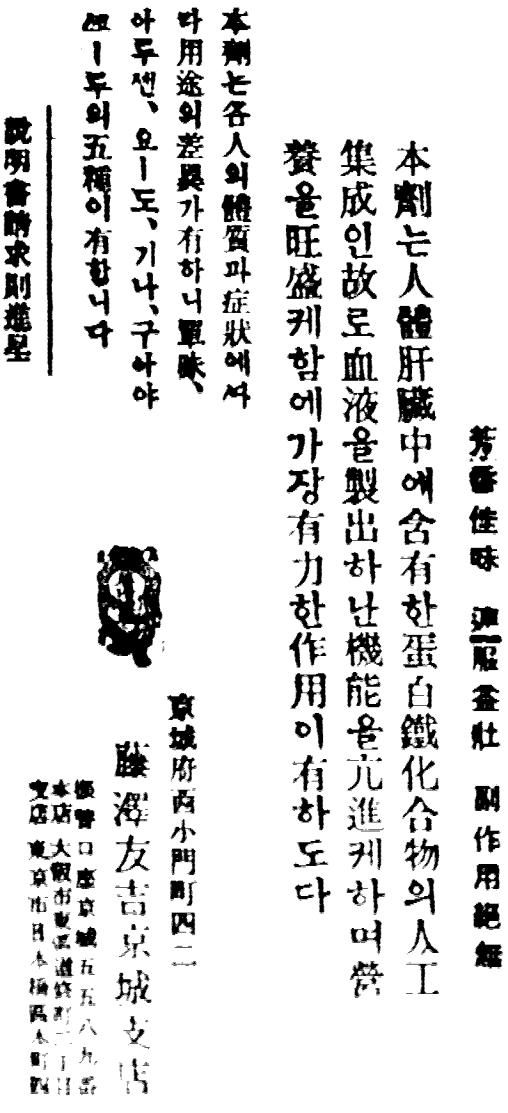 芳香佳味 連服益壯 副作用絕無
本劑는人體肝臟中에含有한蛋白鐵化合物의人工
集成인故로血液을製出하난機能을亢進케하며營
養을旺盛케함에가장有力한作用이有하도다
本劑는各人의體質과症狀에서
다用途의差異가有하니單味、
아두센、요ー도、기나、구아야
쏘ー두의五種이有합니다
說明書請求則進呈
京城府西小門町四二
藤澤友吉京城支店
振替口座京城五五八九番
本店 大阪市東區道修町二丁目
支店 東京市日本橋區本町四